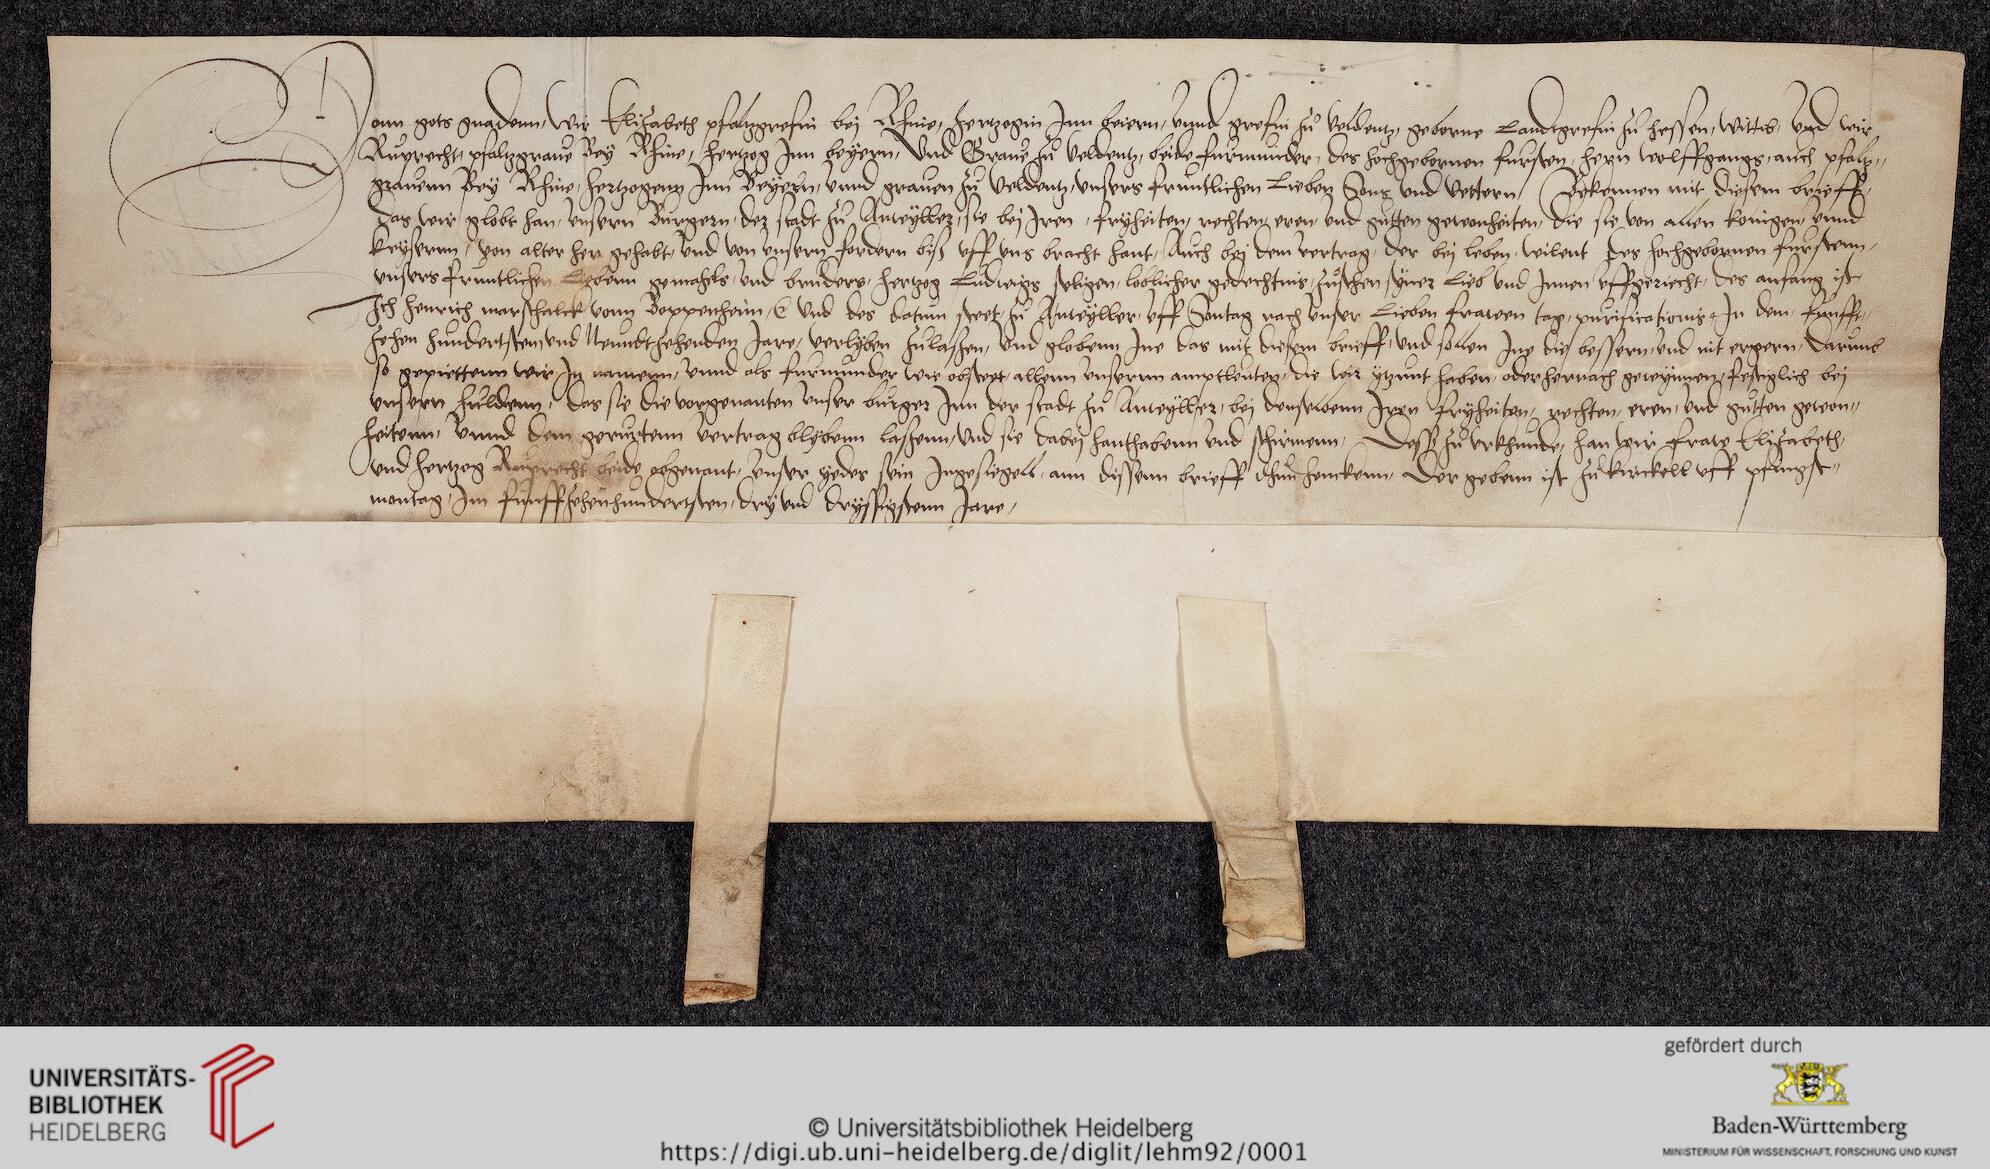 Vonn gots gnadenn, Wir Elisabeth pfaltzgrefin bei Rhine, hertzogin Inn beiern, vnnd grefin zu veldentz, geborne Landtgrefin zu hessen, wittib, vnd wir
Ruprecht, pfaltzgraue Bey Rhine, hertzog Inn beyern, Vnd Graue zu veldentz, beide furmunder, des hochgebornen fursten, hern wolffgangs, auch pfaltz-
grauenn Bey Rhine, hertzogenn Inn Beyern, vnnd grauen zu veldentz, vnsers fruntlichen Lieben Sons vnd vettern, Bekennen mit diesem brieff,
Das wir globt han, vnsern Burgern, der stadt zu Anwyller, sie bei Iren, fryheiten, rechten, eren, vnd gutten gewonheiten, die sie von allen konigen, vnnd
keysernn, von alter her gehabt, vnd von vnsern fordern biß vff vns bracht hant, Auch bei dem vertrag, der bei leben, wilent des hochgebornen furstenn,
vnsers fruntlichen Liebenn gemahls, vnd bruders, hertzog Ludwigs seligen, loblicher gedechtnis, zuschen, siner Lieb vnd Innen vffgericht, des anfang ist
Ich henrich marschalck vonn Bappenheim, vnd des datum steet, zu Anwyller, vff Sontag nach vnser Lieben frawen tag, purificationis, In dem funfft-
zehen hundertstem vnd Neundtzehenden Jare, verlyben zulassen, vnd globenn Ine das mit diesem brieff, vnd sollen Ine die bessern, vnd nit ergern, Darumb
so gepiettenn wir In namenn, vnnd als furmunder wie obsteet, allenn vnsernn amptleuten, die wir ytzunt haben, oder hernach gewynnen, festiglich bei
vnsern huldenn, das sie die vorgenanten vnser burger Inn der stadt zu Anwyller, bei denselbenn Iren fryheiten, rechten, eren, vnd gutten gewon-
heitenn, vnnd dem gerurtenn vertrag blybenn lassenn, vnd sie dabei hanthabenn vnd schirmenn, Deß zu vrkhunde, han wir fraw Elisabeth,
vnd hertzog Ruprecht beide obgenant, vnser yeder sein Ingesiegell, ann dissenn brieff thun henckenn, Der gebenn ist zu kirckell vff pfingst-
montag, Im funffzehenhundertsten, dry vnd dryssigstenn Jare,
UNIVERSITÄTS-
BIBLIOTHEK
HEIDELBERG
gefördert durch
Baden-Württemberg
MINISTERIUM FÜR WISSENSCHAFT, FORSCHUNG UND KUNST
© Universitätsbibliothek Heidelberg
https://digi.ub.uni-heidelberg.de/diglit/lehm92/0001